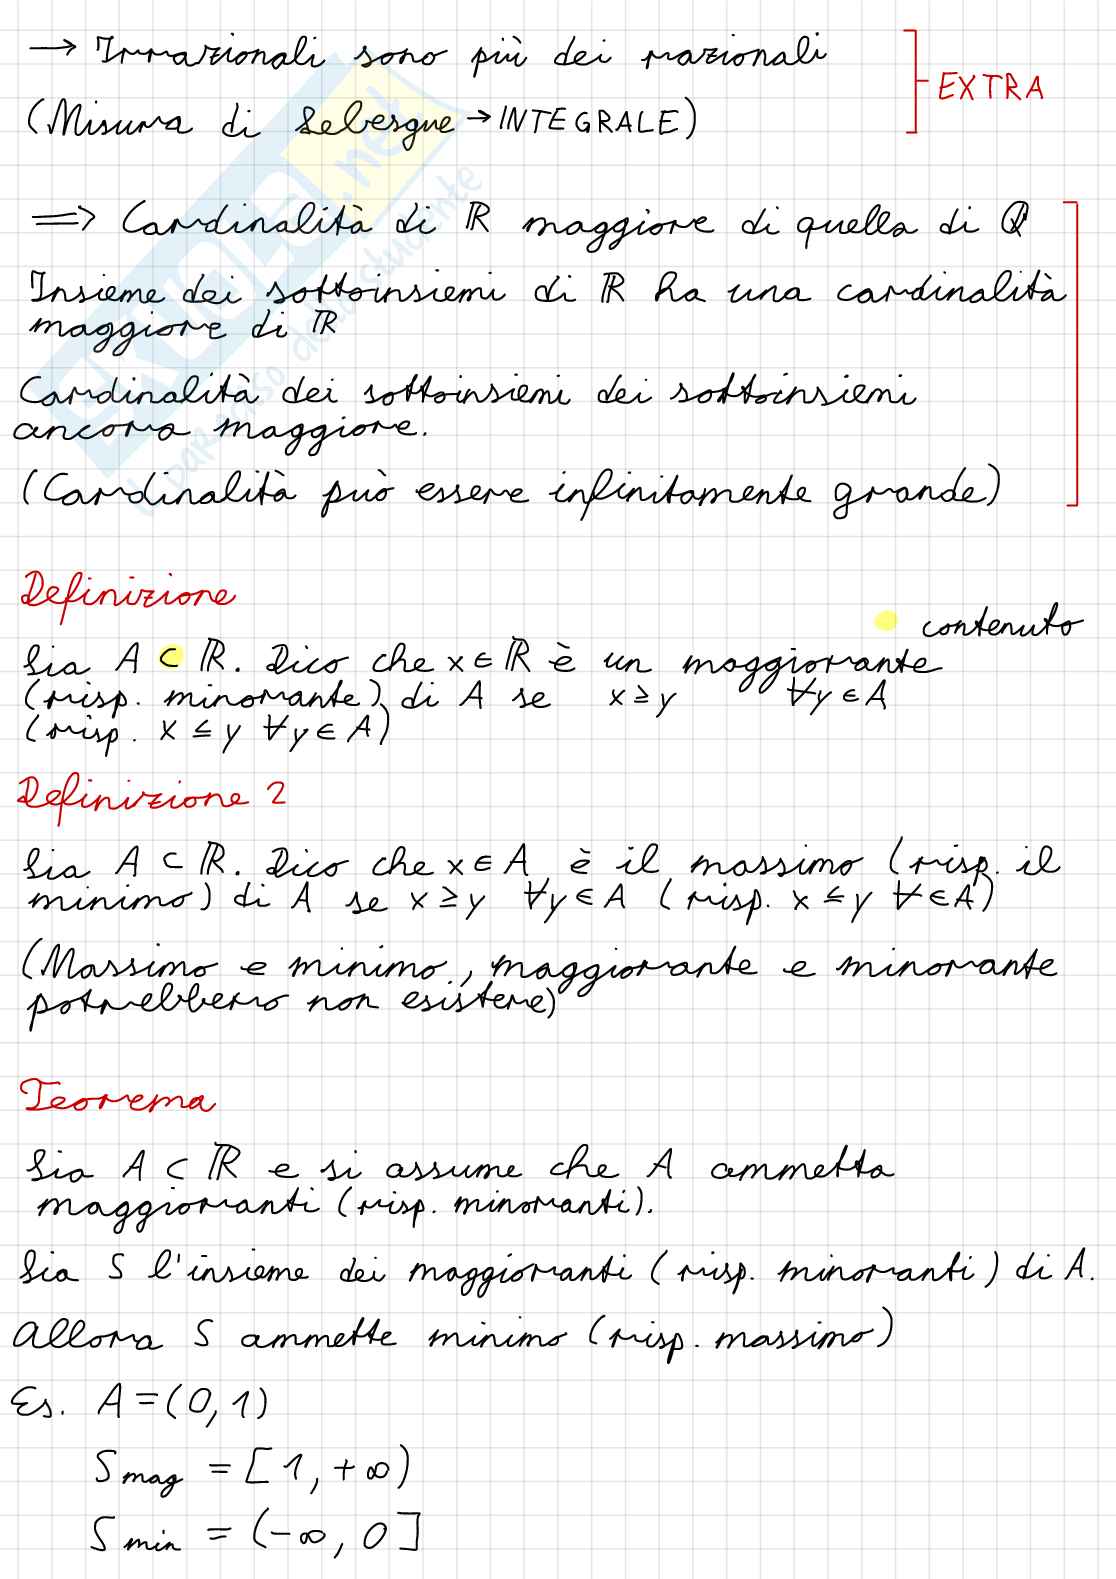 → Irrazionali sono più dei razionali
(Misura di Lebesgue → INTEGRALE)
EXTRA
⟹ Cardinalità di ℝ maggiore di quella di ℚ
Insieme dei sottoinsiemi di ℝ ha una cardinalità
maggiore di ℝ
Cardinalità dei sottoinsiemi dei sottoinsiemi
ancora maggiore.
(Cardinalità può essere infinitamente grande)
Definizione
contenuto
Sia A ⊂ ℝ. Dico che x ∈ ℝ è un maggiorante
(risp. minorante) di A se x ≥ y ∀y ∈ A
(risp. x ≤ y ∀y ∈ A)
Definizione 2
Sia A ⊂ ℝ. Dico che x ∈ A è il massimo (risp. il
minimo) di A se x ≥ y ∀y ∈ A (risp. x ≤ y ∀ ∈ A)
(Massimo e minimo, maggiorante e minorante
potrebbero non esistere)
Teorema
Sia A ⊂ ℝ e si assume che A ammetta
maggioranti (risp. minoranti).
Sia S l'insieme dei maggioranti (risp. minoranti) di A.
Allora S ammette minimo (risp. massimo)
Es. A = (0, 1)
S mag = [1, +∞)
S min = (-∞, 0]